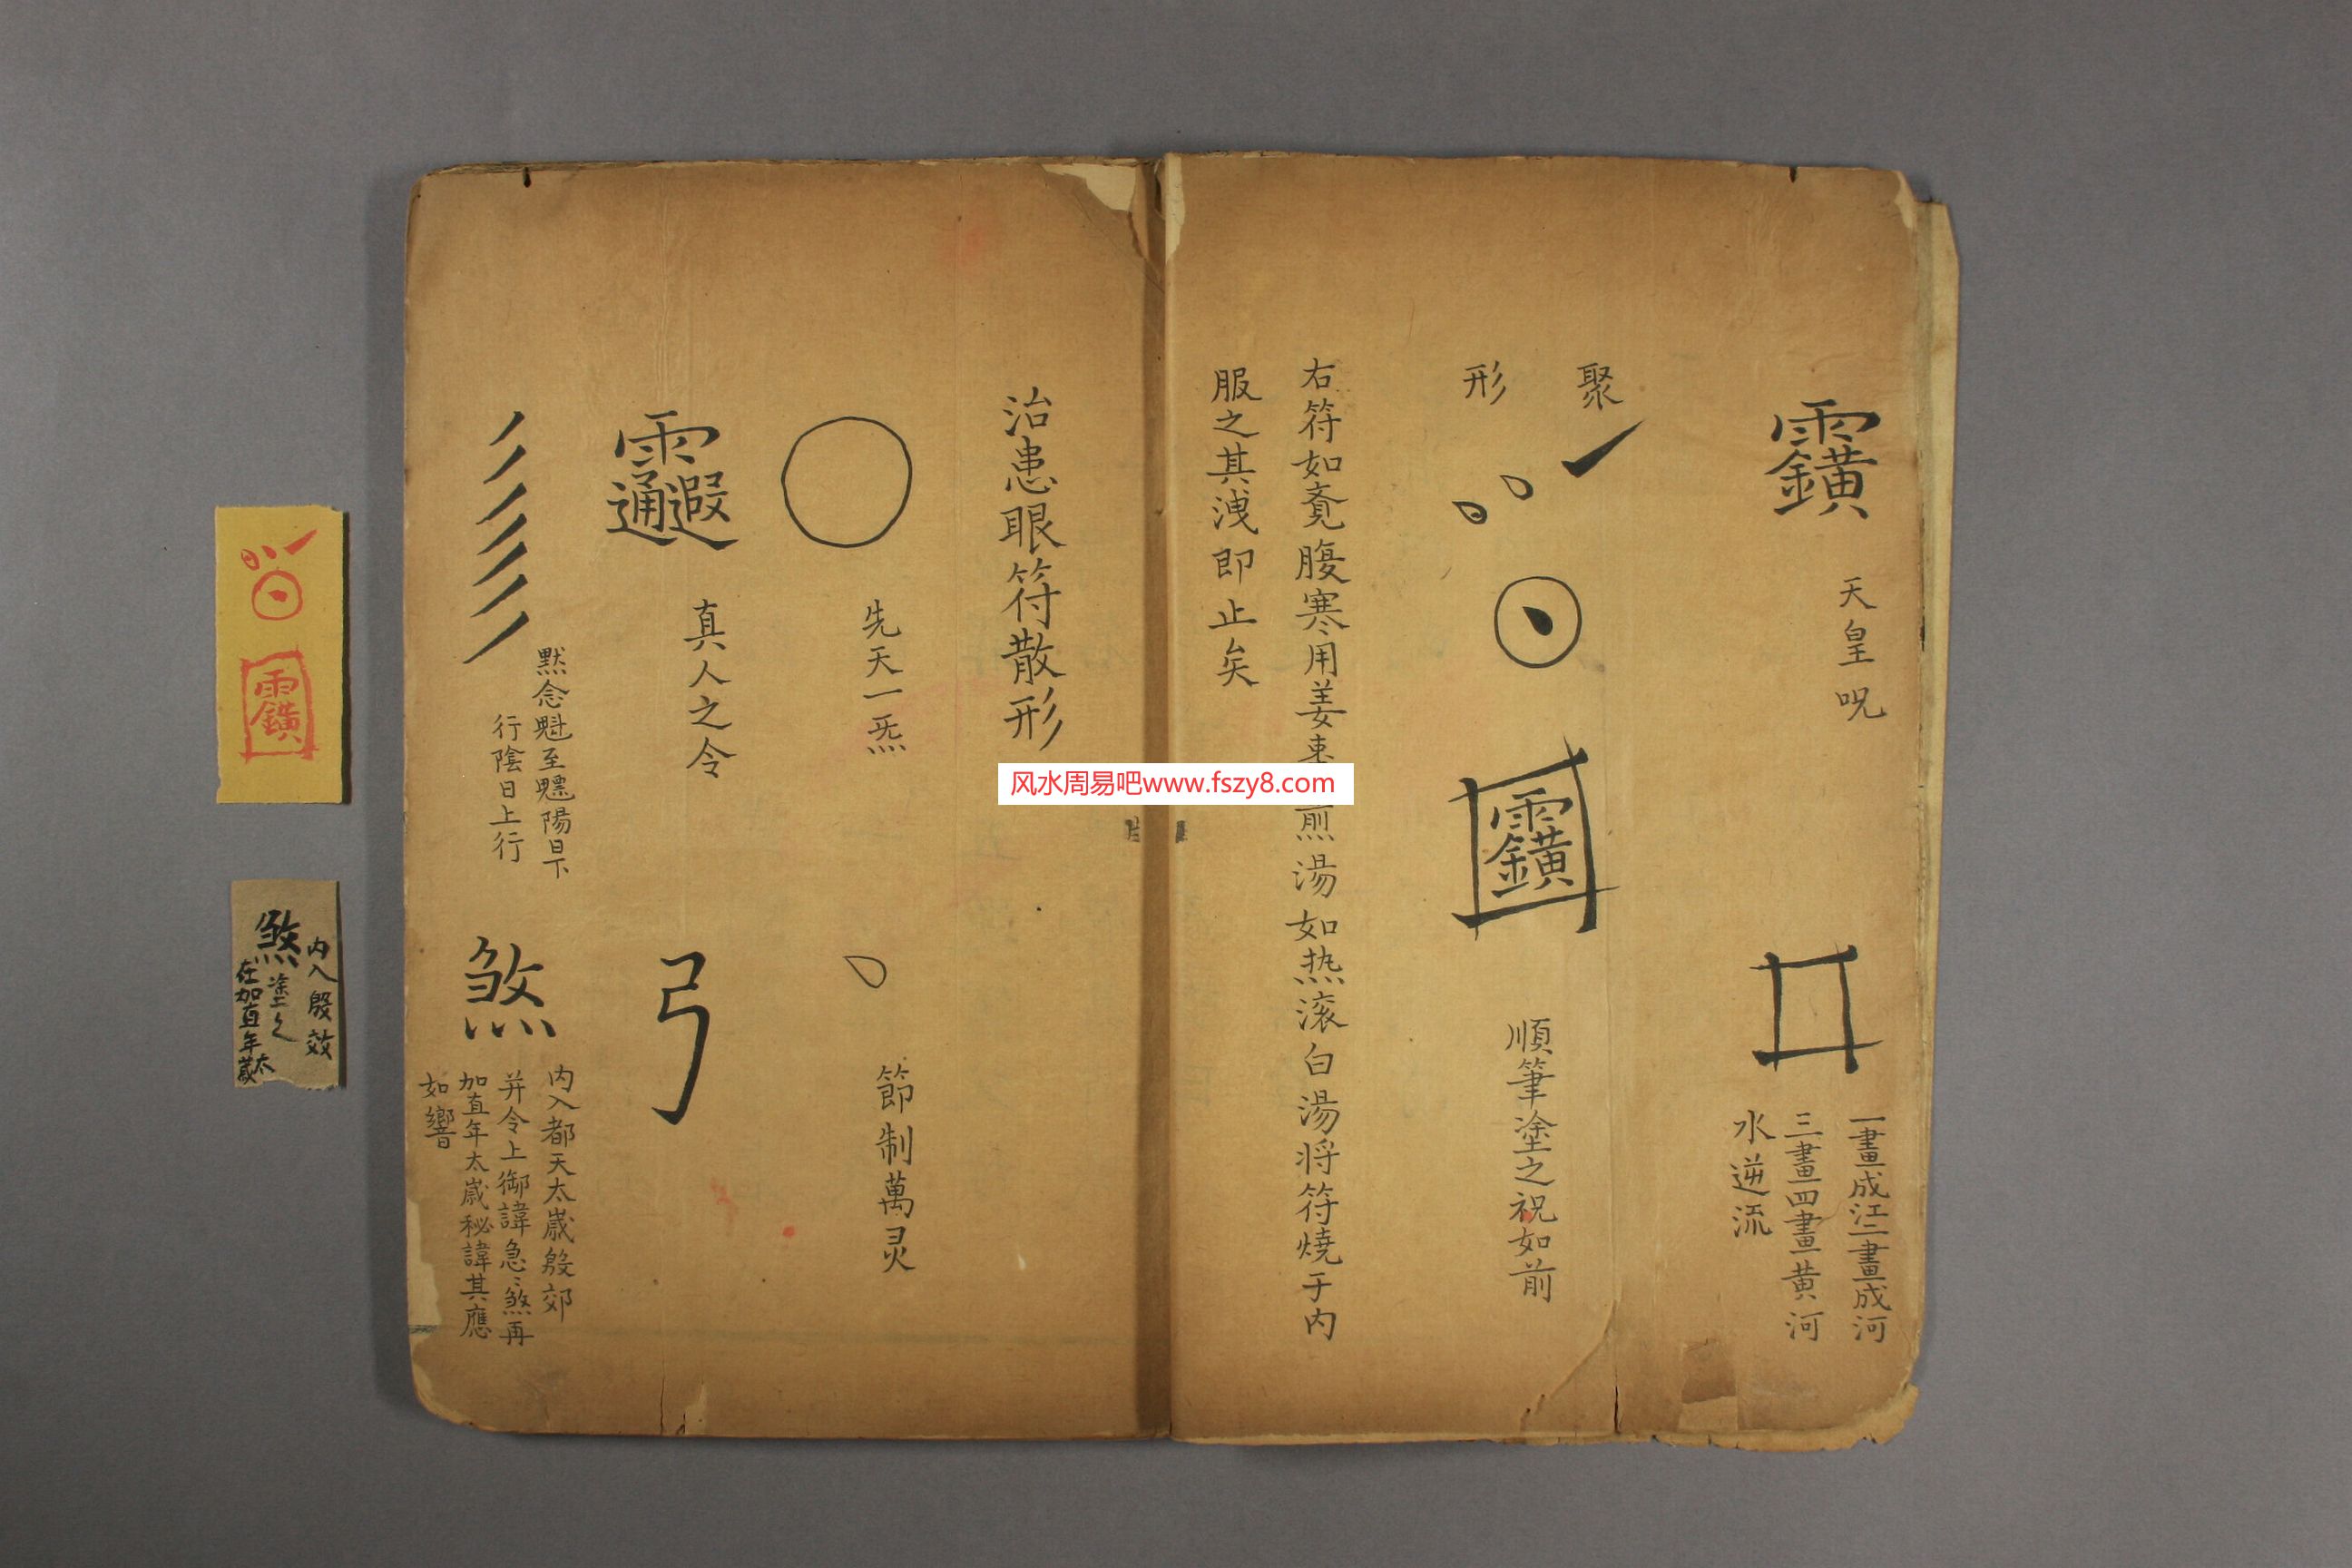 天皇呪
一畫成江二畫成河
三畫四畫黄河
水逆流
聚
形
順筆塗之祝如前
右符如覔腹寒用姜枣煎湯如热滚白湯将符燒于内
服之其洩即止矣
治患眼符散形
先天一炁
節制萬灵
真人之令
弓
默念魁至魒陽日下
行陰日上行
煞
内入都天太歲殷郊
并令上御諱急〻煞再
加直年太歲秘諱其應
如響
内入殷效
煞塗之
在加直年太歲
风水周易吧www.fszy8.com